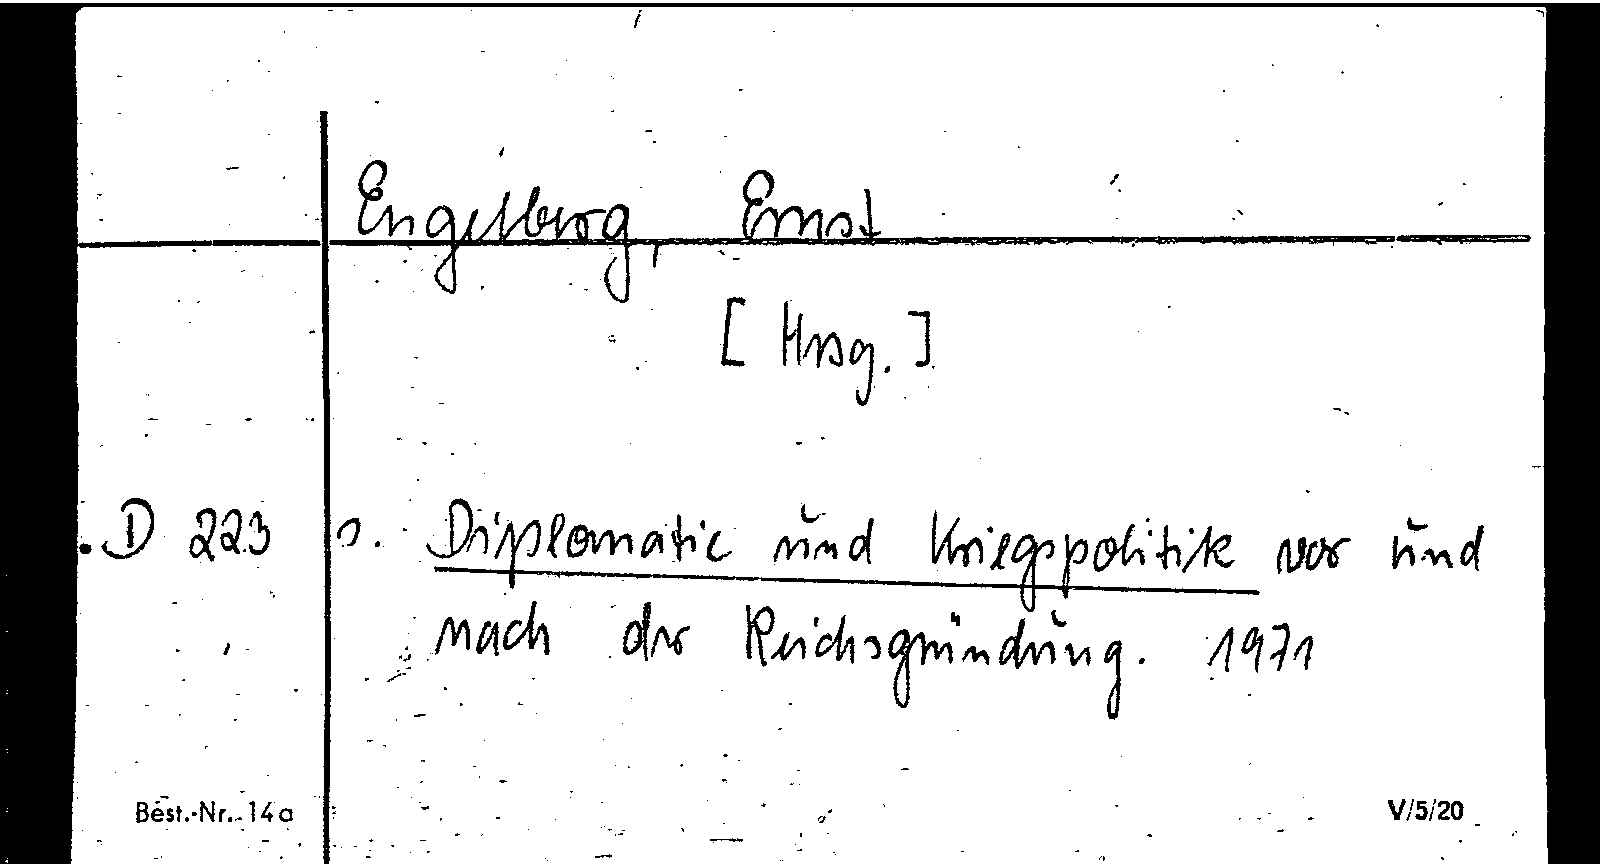 Engelberg, Ernst
[ Hrsg. ]
D 223 s. Diplomatie und Kriegspolitik vor und
nach der Reichsgründung. 1971
Best.-Nr. 14a V/5/20